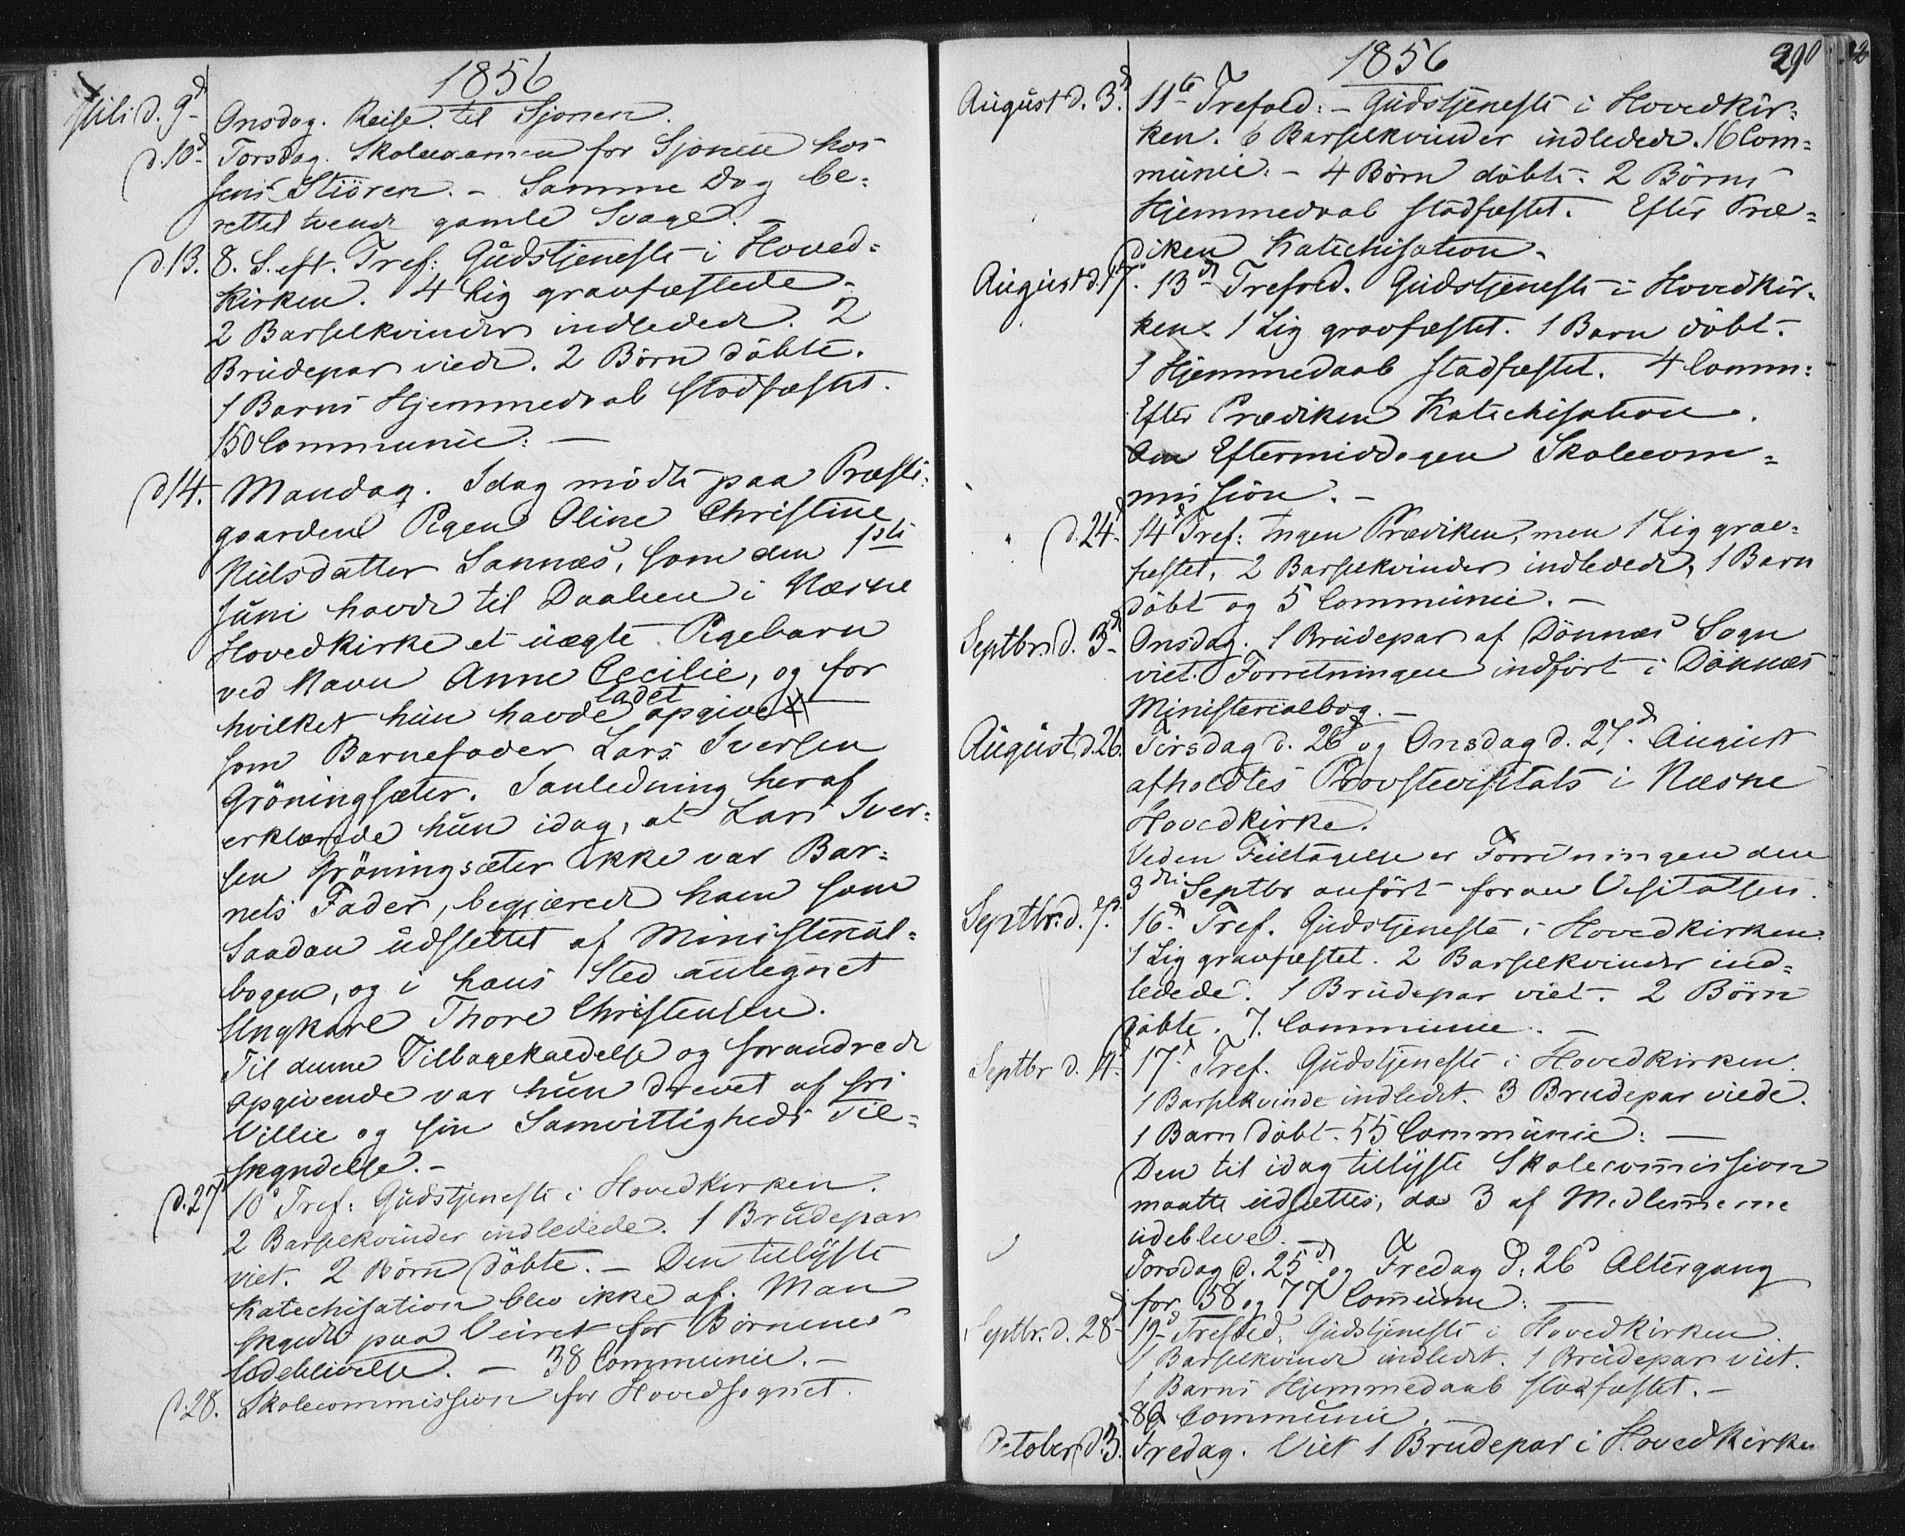 1856
Juli d. 9d Onsdag. Reise til Sjonen.
d. 10d Torsdag. Skoleexamen for Sjonen hos
Jens Stiören. - Samme Dag be-
rettet tvende gamle Svage. -
d. 13. 8. S. eft. Tref: Gudstjeneste i Hoved-
kirken. 4 Lig gravfæstede.
2 Barselkvinder indledede. 2
Brudepar viede. 2 Börn döbte.
1 Barns Hjemmedaab stadfæstet.
150 Communic: -
d. 14. Mandag. Idag mödte paa Præste-
gaarden Pigen Oline Christine
Nielsdatter Sannæs, som den 1ste
Juni havde til Daaben i Næsne
Hovedkirke et uægte Pigebarn
ved Navn Anne Cecilie, og for
hvilket hun havde ladet opgive
som Barnefader Lars Iversen
Gröningsæter. I anledning heraf
erklærede hun idag, at Lars Iver-
sen Gröningsæter ikke var Bar-
nets Fader, begjærede ham som
saadan udslettet af Ministerial-
bogen, og i hans Sted antegnet
Ungkarl Thore Christensen.
Til denne Tilbagekaldelse og forandrede
Opgivende var hun drevet af fri
Villie og sin Samvittigheds Til-
skyndelse. -
d. 27 10d Tref: Gudstjeneste i Hovedkirken.
2 Barselkvinder indledede. 1 Brudepar
viet. 2 Börn döbte. - Den tillyste
Katechisation blev ikke af. Man
skyldte paa Veiret for Börnenes
Udeblivelse. - 38 Communic. -
d. 28. Skolecommission for Hovedsognet.
1856
290
August d. 3d. 11te Trefold: - Gudstjeneste i Hovedkir-
ken. 6 Barselkvinder indledede. 16 Com-
munic. - 4 Börn döbte. 2 Börns
Hjemmedaab stadfæstet. Efter Præ-
diken Katechisation.
August d. 17. 13d Trefold. Gudstjeneste i Hovedkir-
ken. 1 Lig gravfæstet. 1 Barn döbt.
1 Hjemmedaab stadfæstet. 4 Comm:
Efter Prædiken Katechisation.
Om Eftermiddagen Skolecom-
mission. -
d. 24. 14d Tref: Ingen Prædiken, men 1 Lig grav-
fæstet, 2 Barselkvinder indledede, 1 Barn
döbt og 5 Communic. -
Septbr. d. 3d Onsdag. 1 Brudepar af Dönnæs Sogn
viet. Forretningen indfört i Dönnæs
Ministerialbog. -
August d. 26. Tirsdag d. 26d og Onsdag d. 27d August
afholdtes Provstevisitats i Næsne
Hovedkirke.
Ved en Feiltagelse er Forretningen den
3die Septbr anfört foran Visitatsen.
Septbr. d. 7d. 16d Tref. Gudstjeneste i Hovedkirken.
1 Lig gravfæstet. 2 Barselkvinder ind-
ledede. 1 Brudepar viet. 2 Börn
döbte. 7 Communic. -
Septbr d. 14. 17d Tref. Gudstjeneste i Hovedkirken.
1 Barselkvinde indledet. 3 Brudepar viede.
1 Barn döbt. 55 Communic: -
Den til idag tillyste Skolecommission
maatte udsættes, da 3 af Medlemmerne
udebleve. -
Torsdag d. 25d og Fredag d. 26d Altergang
for 58 og 77 Commun: -
Septbr. d. 28d 19d Trefold. Gudstjeneste i Hovedkirken.
1 Barselkvinde indledet. 1 Brudepar viet.
1 Barns Hjemmedaab stadfæstet. -
Communic. -
October d. 3. Fredag. Viet 1 Brudepar i Hovedkirken